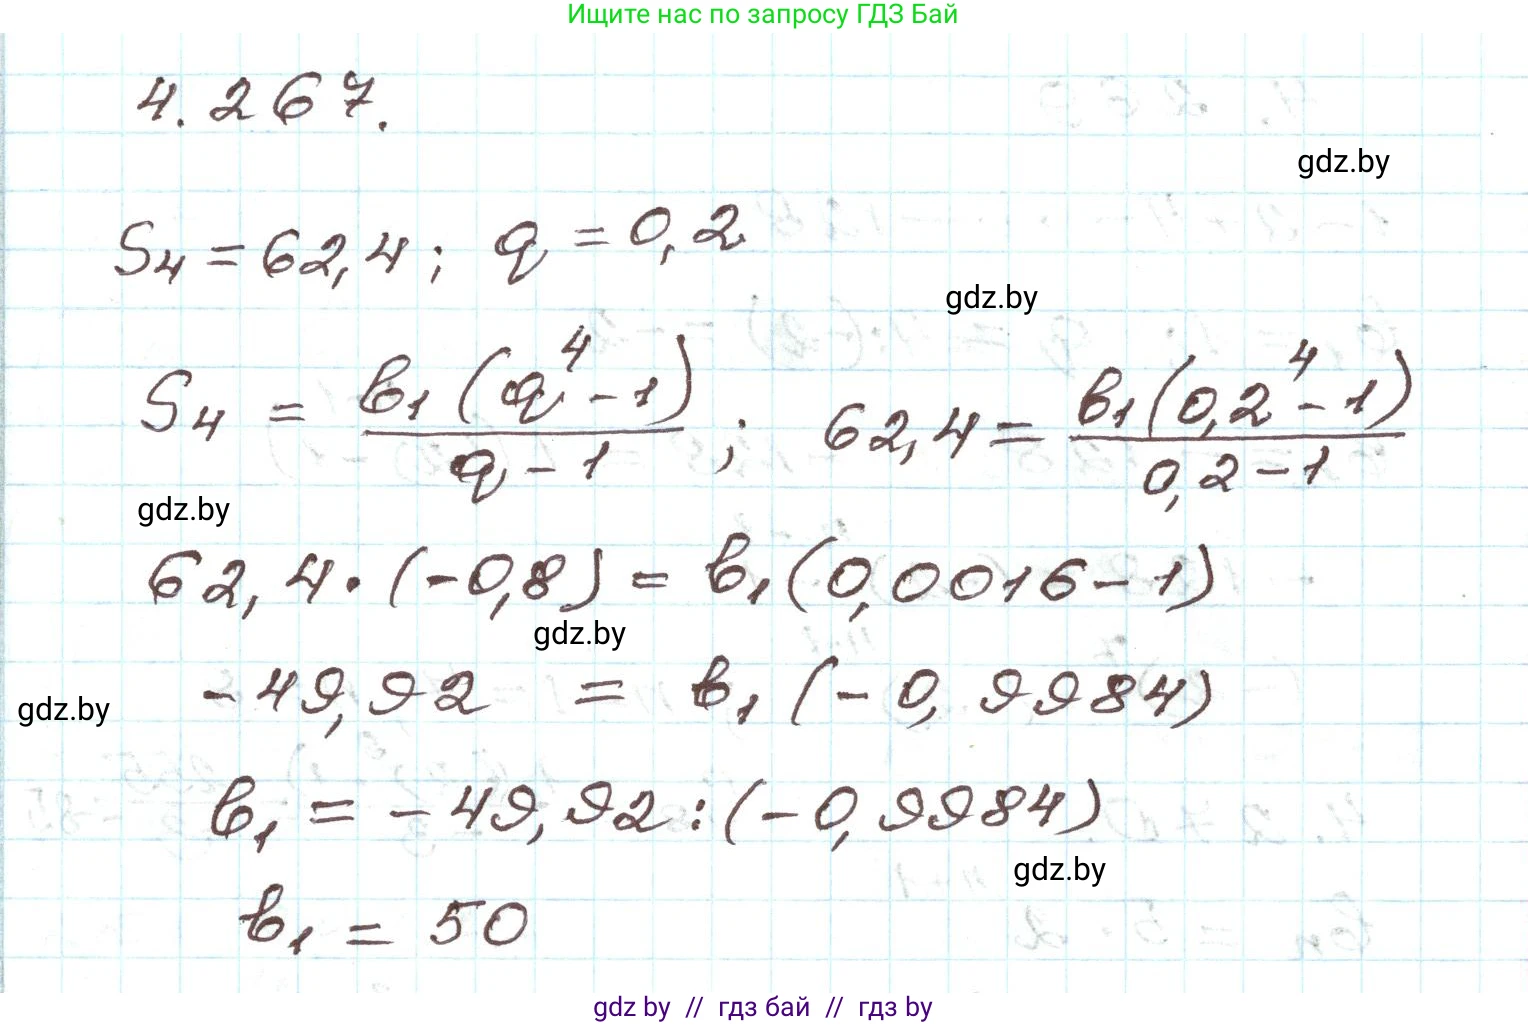 Ищите нас по запросу ГДЗ Бай
4.267.
gdz.by
S₄ = 62,4; q = 0,2
gdz.by
S₄ = b₁(q⁴ - 1) / (q - 1); 62,4 = b₁(0,2⁴ - 1) / (0,2 - 1)
gdz.by
62,4 · (-0,8) = b₁(0,0016 - 1)
gdz.by
-49,92 = b₁(-0,9984)
gdz.by
b₁ = -49,92 : (-0,9984)
gdz.by
b₁ = 50
gdz by // гдз бай // гдз by